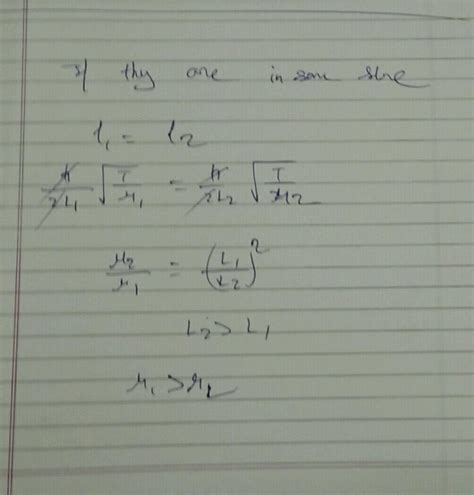 If thy are in same
f₁ = f₂
n/2L₁ √(T/μ₁) = n/2L₂ √(T/μ₂)
μ₂/μ₁ = (L₁/L₂)²
L₂ > L₁
μ₁ > μ₂